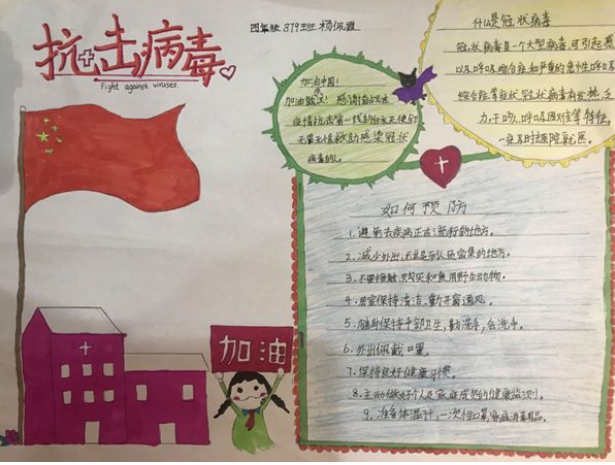 抗击病毒
Fight against viruses.
四年级 379班 杨佩
什么是冠状病毒
冠状病毒是一个大型病毒,可引起感
以及呼吸综合症和严重的急性呼吸
综合症等症状,冠状病毒有发热、乏
力、干咳、呼吸困难等特征,
一定及时去医院就医。
加油中国!
加油武汉!感谢奋战在
疫情抗击第一线的白衣天使们
救助感染冠状
病毒的人。
如何预防
1.避免去疾病正在流行的地方。
2.减少外出,尤其是人员密集的地方。
3.不要接触、购买和食用野生动物。
4.居室保持清洁,勤开窗通风。
5.随时保持手部卫生,勤洗手,会洗手。
6.外出佩戴口罩。
7.保持良好健康习惯。
8.主动做好个人及家庭成员的健康监测。
9.准备体温计,一次性口罩,家庭消毒用品。
加油